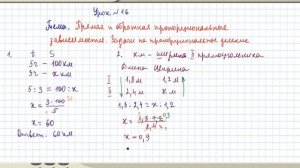 Урок № 16
Тема. Прямая и обратная пропорциональные
зависимости. Задачи на пропорциональное деление
1. t S
5ч - 100км
3ч - x км
5 : 3 = 100 : x
x = 3·100/5
x = 60
Ответ. 60 км
2. x м - ширина II прямоугольника
Длина Ширина
I 1,8 м 1,2 м
II 2,4 м x м
1,8 : 2,4 = x : 1,2
x =
x = 0,9